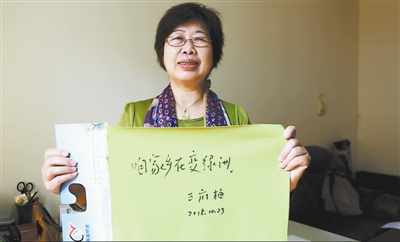 咱家乡在变绿洲
王府梅
2018.10.29